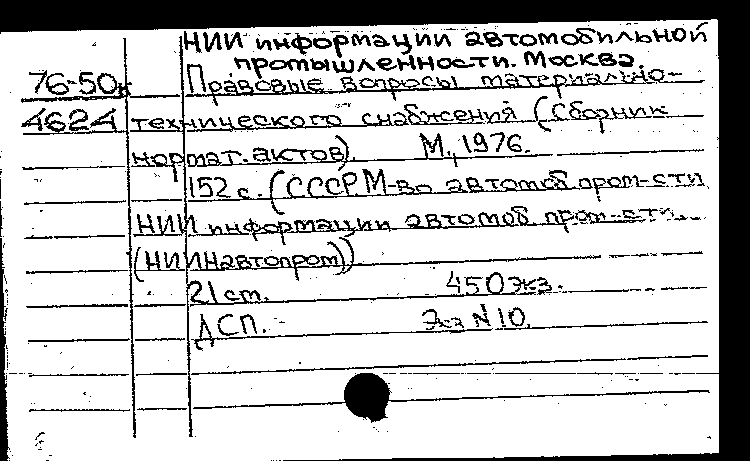 НИИ информации автомобильной
промышленности. Москва.
76-50к Правовые вопросы материально-
4624 технического снабжения (Сборник
нормат. актов). М., 1976.
152 с. (СССР М-во автомоб. пром-сти
НИИ информации автомоб. пром-сти.
(НИИНавтопром))
21 cm. 450 экз.
ДСП. Экз N 10.